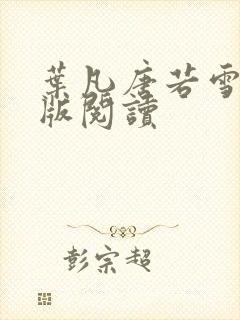 葉凡唐若雪
版閱讀
彭宗超